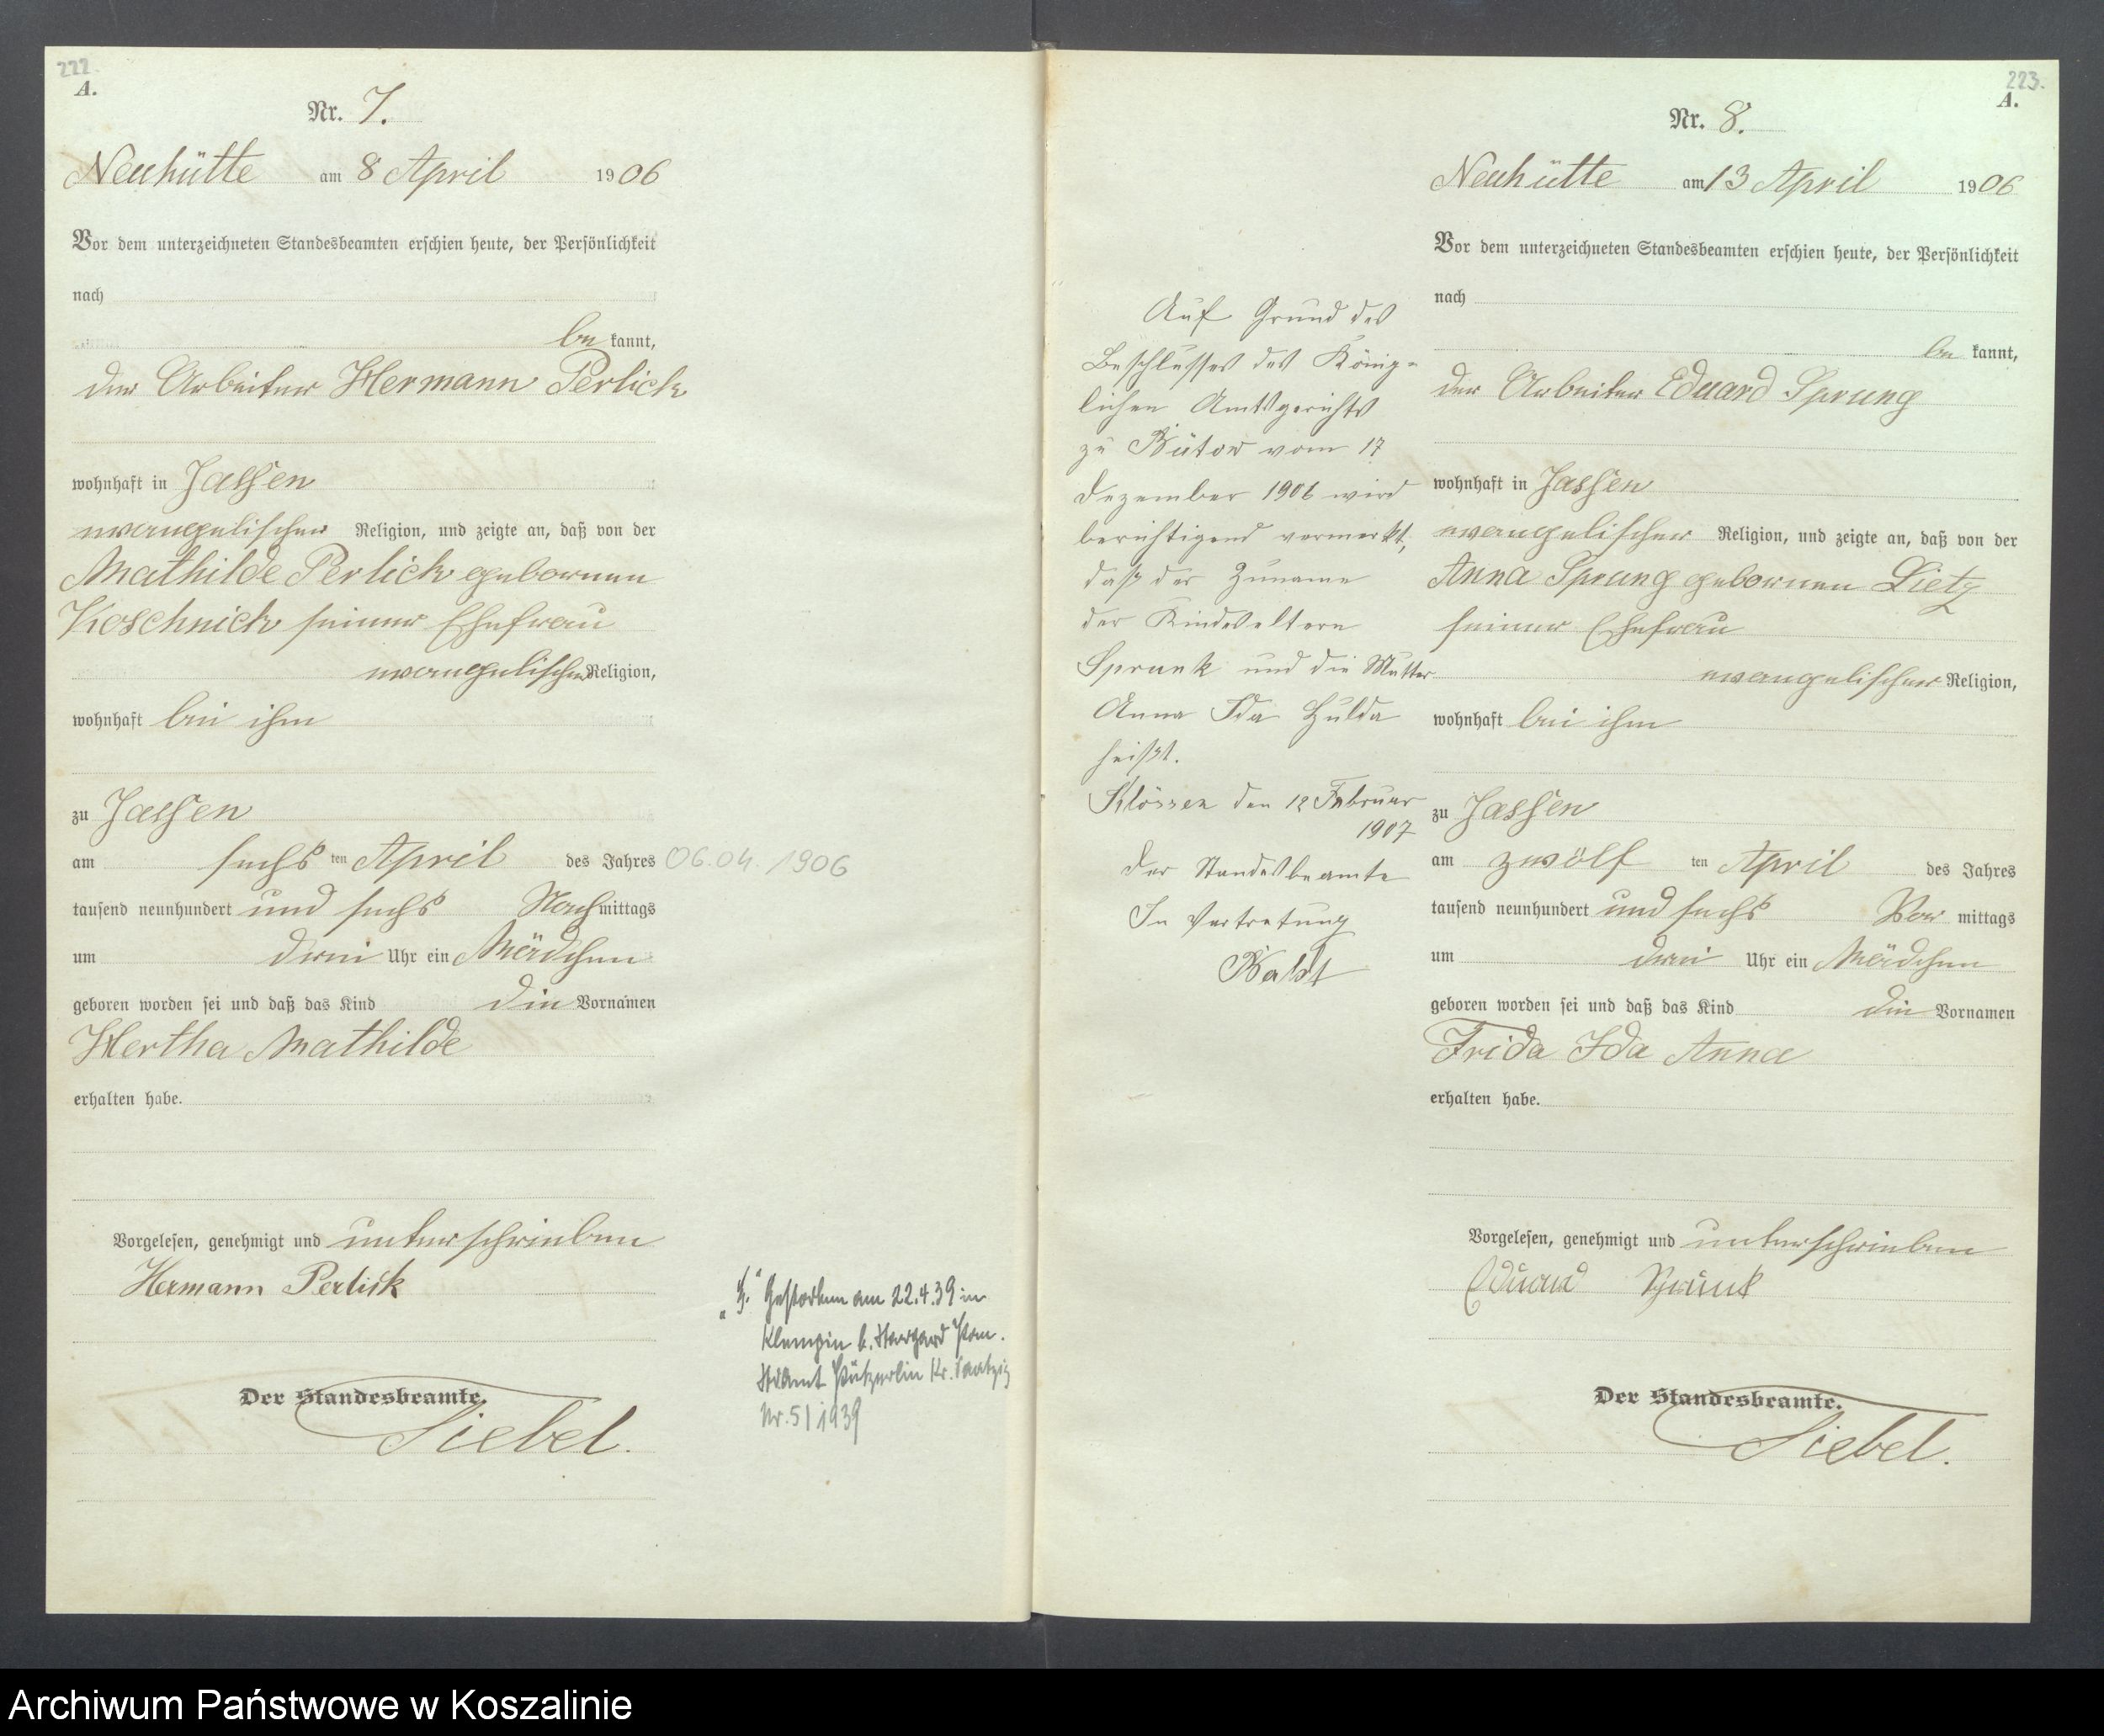 222
A.
Nr. 7.
Neuhütte am 8 April 1906
Vor dem unterzeichneten Standesbeamten erschien heute, der Persönlichkeit
nach
be kannt,
der Arbeiter Hermann Perlick
wohnhaft in Jassen
evangelischer Religion, und zeigte an, daß von der
Mathilde Perlick geborenen
Koschnick seiner Ehefrau
evangelischer Religion,
wohnhaft bei ihm
zu Jassen
am sechs ten April des Jahres 06.04.1906
tausend neunhundert und sechs Nach mittags
um drei Uhr ein Mädchen
geboren worden sei und daß das Kind die Vornamen
Hertha Mathilde
erhalten habe.
Vorgelesen, genehmigt und unterschrieben
Hermann Perlick
Der Standesbeamte.
Siebel.
Gestorben am 22.4.39 in
Klempin b. Stargard Pom.
StAmt Pützerlin Kr. Saatzig
Nr. 5/1939
223.
A.
Nr. 8.
Neuhütte am 13 April 1906
Vor dem unterzeichneten Standesbeamten erschien heute, der Persönlichkeit
nach
be kannt,
der Arbeiter Eduard Sprung
wohnhaft in Jassen
evangelischer Religion, und zeigte an, daß von der
Anna Sprung geborenen Lietz
seiner Ehefrau
evangelischer Religion,
wohnhaft bei ihm
zu Jassen
am zwölf ten April des Jahres
tausend neunhundert und sechs Vor mittags
um drei Uhr ein Mädchen
geboren worden sei und daß das Kind die Vornamen
Frida Ida Anna
erhalten habe.
Vorgelesen, genehmigt und unterschrieben
Eduard Sprunk
Der Standesbeamte.
Siebel.
Auf Grund des
Beschlusses des König-
lichen Amtsgerichts
zu Bütow vom 17
Dezember 1906 wird
berichtigend vermerkt,
daß der Zuname
der Kindeseltern
Sprunk und die Mutter
Anna Ida Hulda
heißt.
Klössen den 12 Februar
1907
Der Standesbeamte
In Vertretung
Archiwum Państwowe w Koszalinie